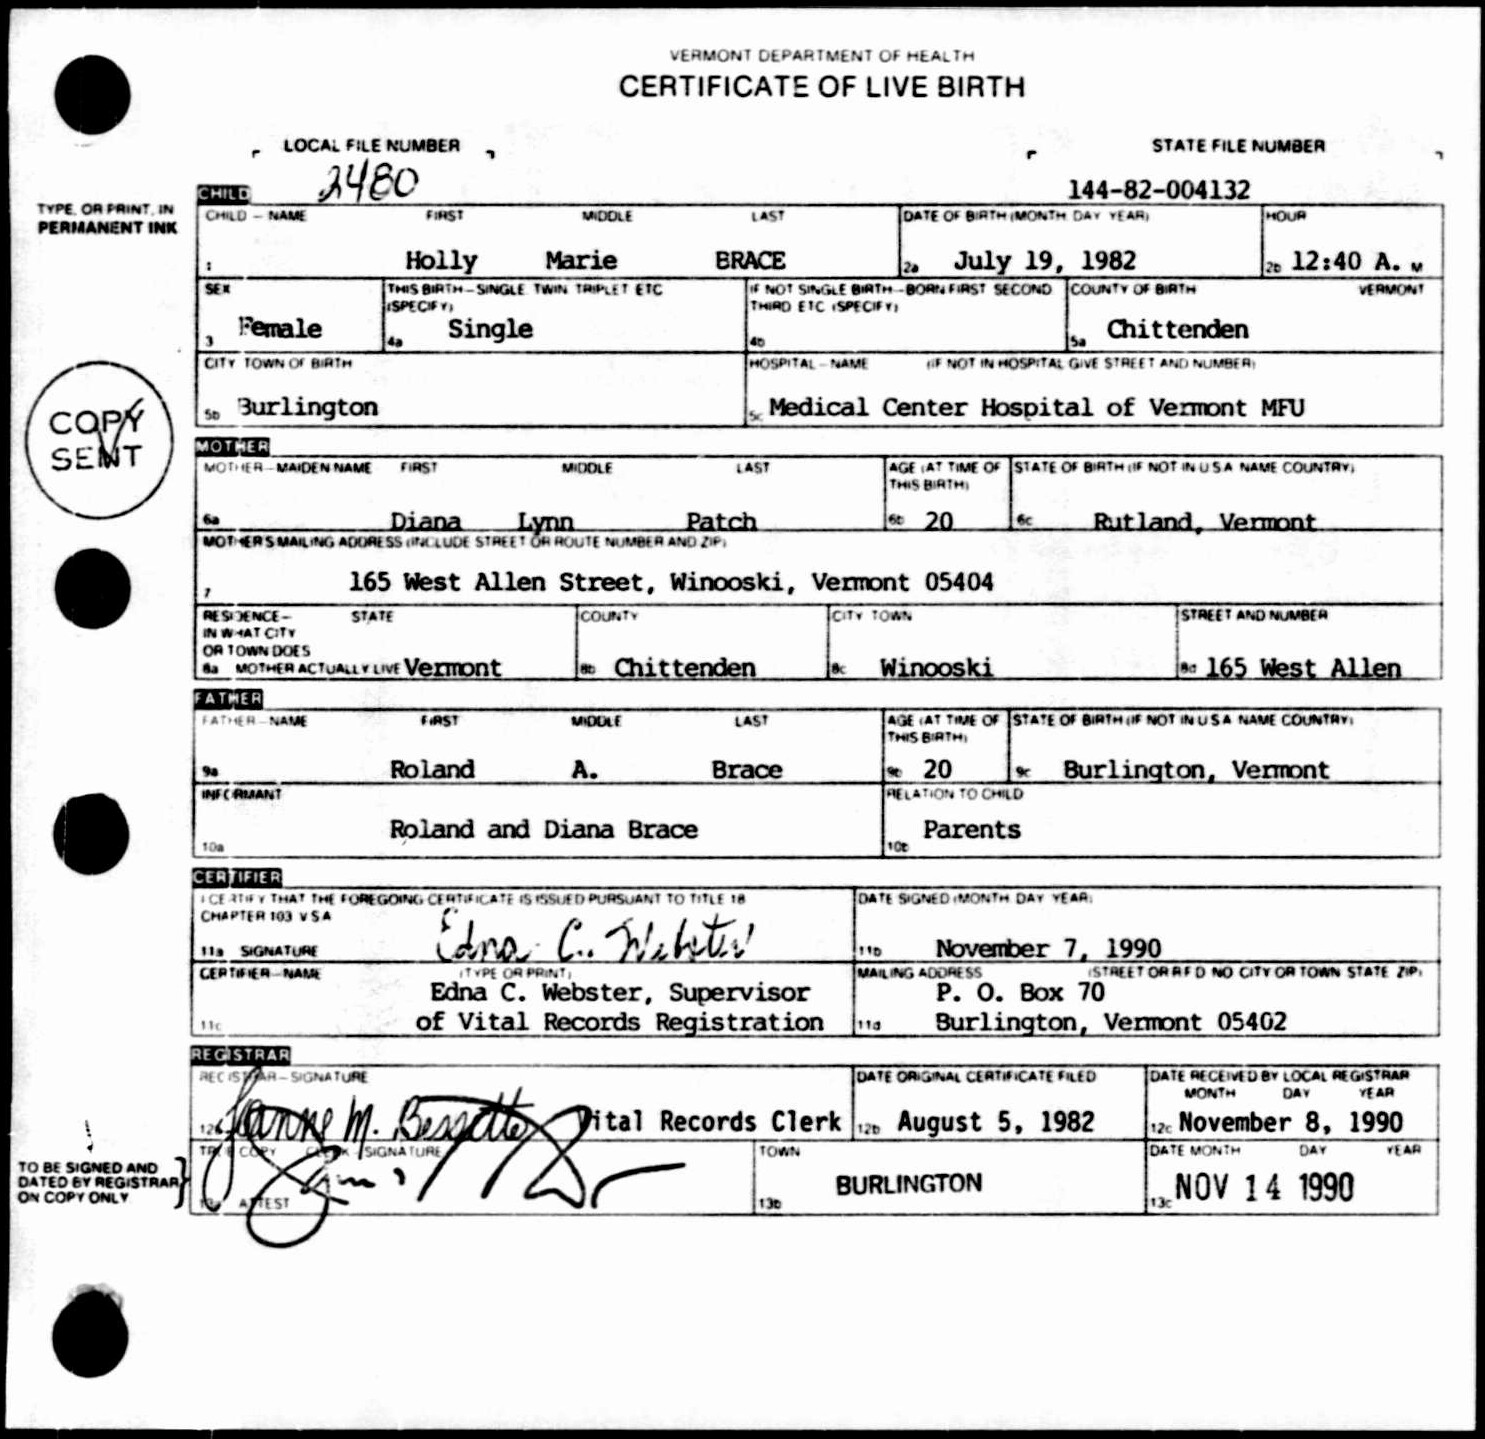 VERMONT DEPARTMENT OF HEALTH
CERTIFICATE OF LIVE BIRTH
LOCAL FILE NUMBER STATE FILE NUMBER
2480 144-82-004132
TYPE, OR PRINT, IN
PERMANENT INK
CHILD
CHILD – NAME FIRST MIDDLE LAST DATE OF BIRTH (MONTH DAY YEAR) HOUR
1 Holly Marie BRACE 2a July 19, 1982 2b 12:40 A. M
SEX THIS BIRTH – SINGLE TWIN TRIPLET ETC IF NOT SINGLE BIRTH – BORN FIRST SECOND COUNTY OF BIRTH VERMONT
(SPECIFY) THIRD ETC (SPECIFY)
3 Female 4a Single 4b 5a Chittenden
CITY TOWN OF BIRTH HOSPITAL – NAME (IF NOT IN HOSPITAL GIVE STREET AND NUMBER)
5b Burlington 5c Medical Center Hospital of Vermont MFU
COPY
SENT
MOTHER
MOTHER – MAIDEN NAME FIRST MIDDLE LAST AGE (AT TIME OF STATE OF BIRTH (IF NOT IN U S A NAME COUNTRY)
THIS BIRTH)
6a Diana Lynn Patch 6b 20 6c Rutland, Vermont
MOTHER'S MAILING ADDRESS (INCLUDE STREET OR ROUTE NUMBER AND ZIP)
7 165 West Allen Street, Winooski, Vermont 05404
RESIDENCE – STATE COUNTY CITY TOWN STREET AND NUMBER
IN WHAT CITY
OR TOWN DOES
8a MOTHER ACTUALLY LIVE Vermont 8b Chittenden 8c Winooski 8d 165 West Allen
FATHER
FATHER – NAME FIRST MIDDLE LAST AGE (AT TIME OF STATE OF BIRTH (IF NOT IN U S A NAME COUNTRY)
THIS BIRTH)
9a Roland A. Brace 9b 20 9c Burlington, Vermont
INFORMANT RELATION TO CHILD
10a Roland and Diana Brace 10b Parents
CERTIFIER
I CERTIFY THAT THE FOREGOING CERTIFICATE IS ISSUED PURSUANT TO TITLE 18 DATE SIGNED (MONTH DAY YEAR)
CHAPTER 103 V S A
11a SIGNATURE Edna C. Webster 11b November 7, 1990
CERTIFIER – NAME (TYPE OR PRINT) MAILING ADDRESS (STREET OR R F D NO CITY OR TOWN STATE ZIP)
Edna C. Webster, Supervisor P. O. Box 70
11c of Vital Records Registration 11d Burlington, Vermont 05402
REGISTRAR
REGISTRAR – SIGNATURE DATE ORIGINAL CERTIFICATE FILED DATE RECEIVED BY LOCAL REGISTRAR
MONTH DAY YEAR
12a Joanne M. Bessette Vital Records Clerk 12b August 5, 1982 12c November 8, 1990
TRUE COPY CLERK – SIGNATURE TOWN DATE MONTH DAY YEAR
TO BE SIGNED AND
DATED BY REGISTRAR
ON COPY ONLY
13a ATTEST 13b BURLINGTON 13c NOV 14 1990